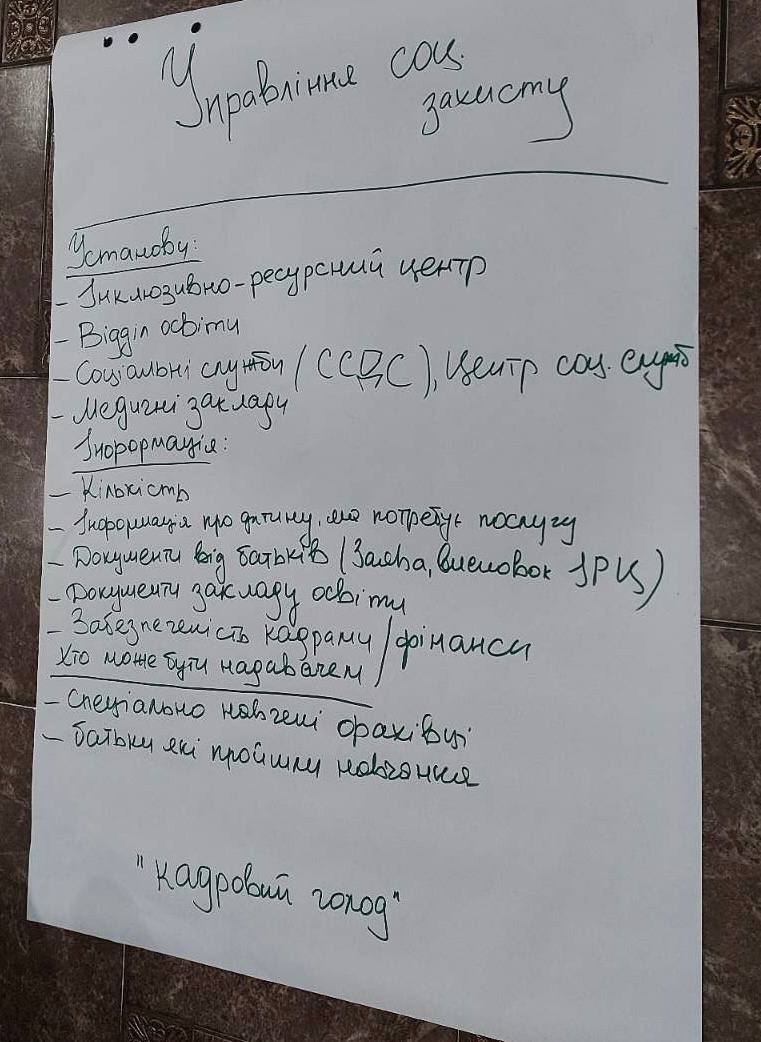 Управління соц.
захисту
Установи:
- Інклюзивно-ресурсний центр
- Відділ освіти
- Соціальні служби (ССДС), Центр соц. служб
- Медичні заклади
Інформація:
- Кількість
- Інформація про дитину, яка потребує послугу
- Документи від батьків (Заява, висновок ІРЦ)
- Документи закладу освіти
- Забезпеченість кадрами / фінанси
Хто може бути надавачем /
- Спеціально навчені фахівці
- батьки які пройшли навчання
"кадровий голод"